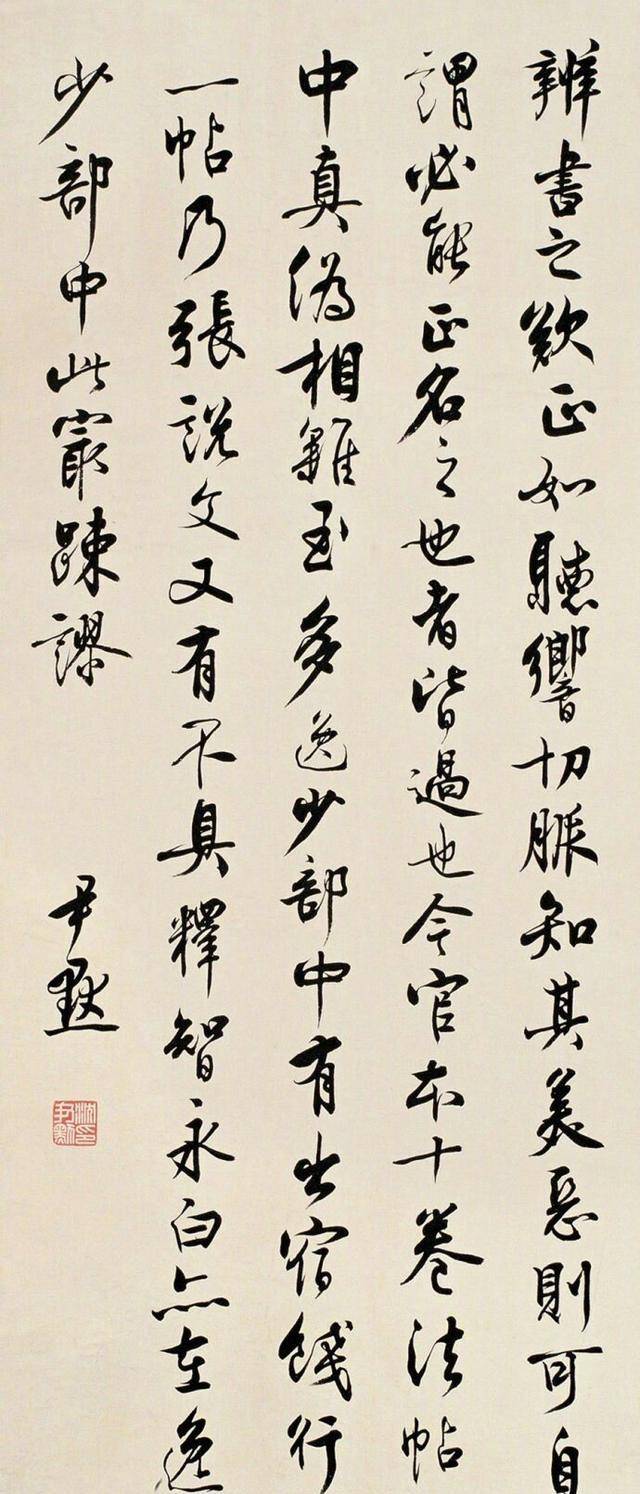 辨書之難正如聽響切脈知其美惡則可自
謂必能正名之也者皆過也今官本十卷法帖
中真偽相雜至多逸少部中有出宿餞行
一帖乃張說文又有不具釋智永白亦在逸
少部中此最疎謬
尹默
沈尹默印